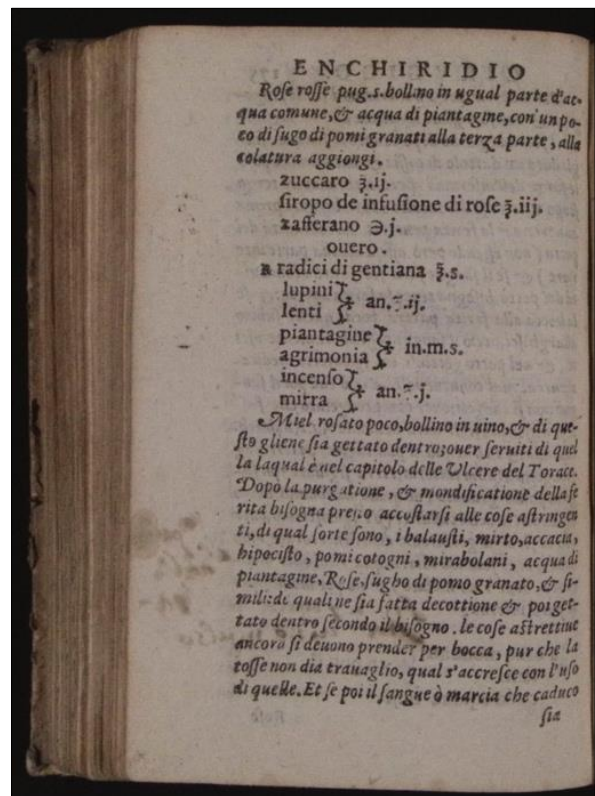 ENCHIRIDIO
Rose rosse pug.s.bollino in ugual parte d'ac
qua comune,& acqua di piantagine,con un po-
co di sugo di pomi granati alla terza parte, alla
colatura aggiongi.
zuccaro ℥.ij.
siropo de infusione di rose ℥.iij.
zafferano ℈.j.
ouero.
℞ radici di gentiana ℥.s.
lupini
lenti an.℥.ij.
piantagine
agrimonia in.m.s.
incenso
mirra an.℥.j.
Miel rosato poco,bollino in uino,& di que-
sto gliene sia gettato dentro;ouer seruiti di quel
la laqual è nel capitolo delle Vlcere del Torace.
Dopo la purgatione, & mondificatione della fe
rita bisogna presto accostarsi alle cose astringen
ti,di qual sorte sono, i balausti, mirto,accacia,
hipocisto, pomi cotogni, mirabolani, acqua di
piantagine,Rose,sugho di pomo granato,& si-
mili:de quali ne sia fatta decottione & poi get-
tato dentro secondo il bisogno. le cose astrettiue
ancora si deuono prender per bocca, pur che la
tosse non dia trauaglio, qual s'accresce con l'uso
di quelle. Et se poi il sangue ò marcia che caduco
sia